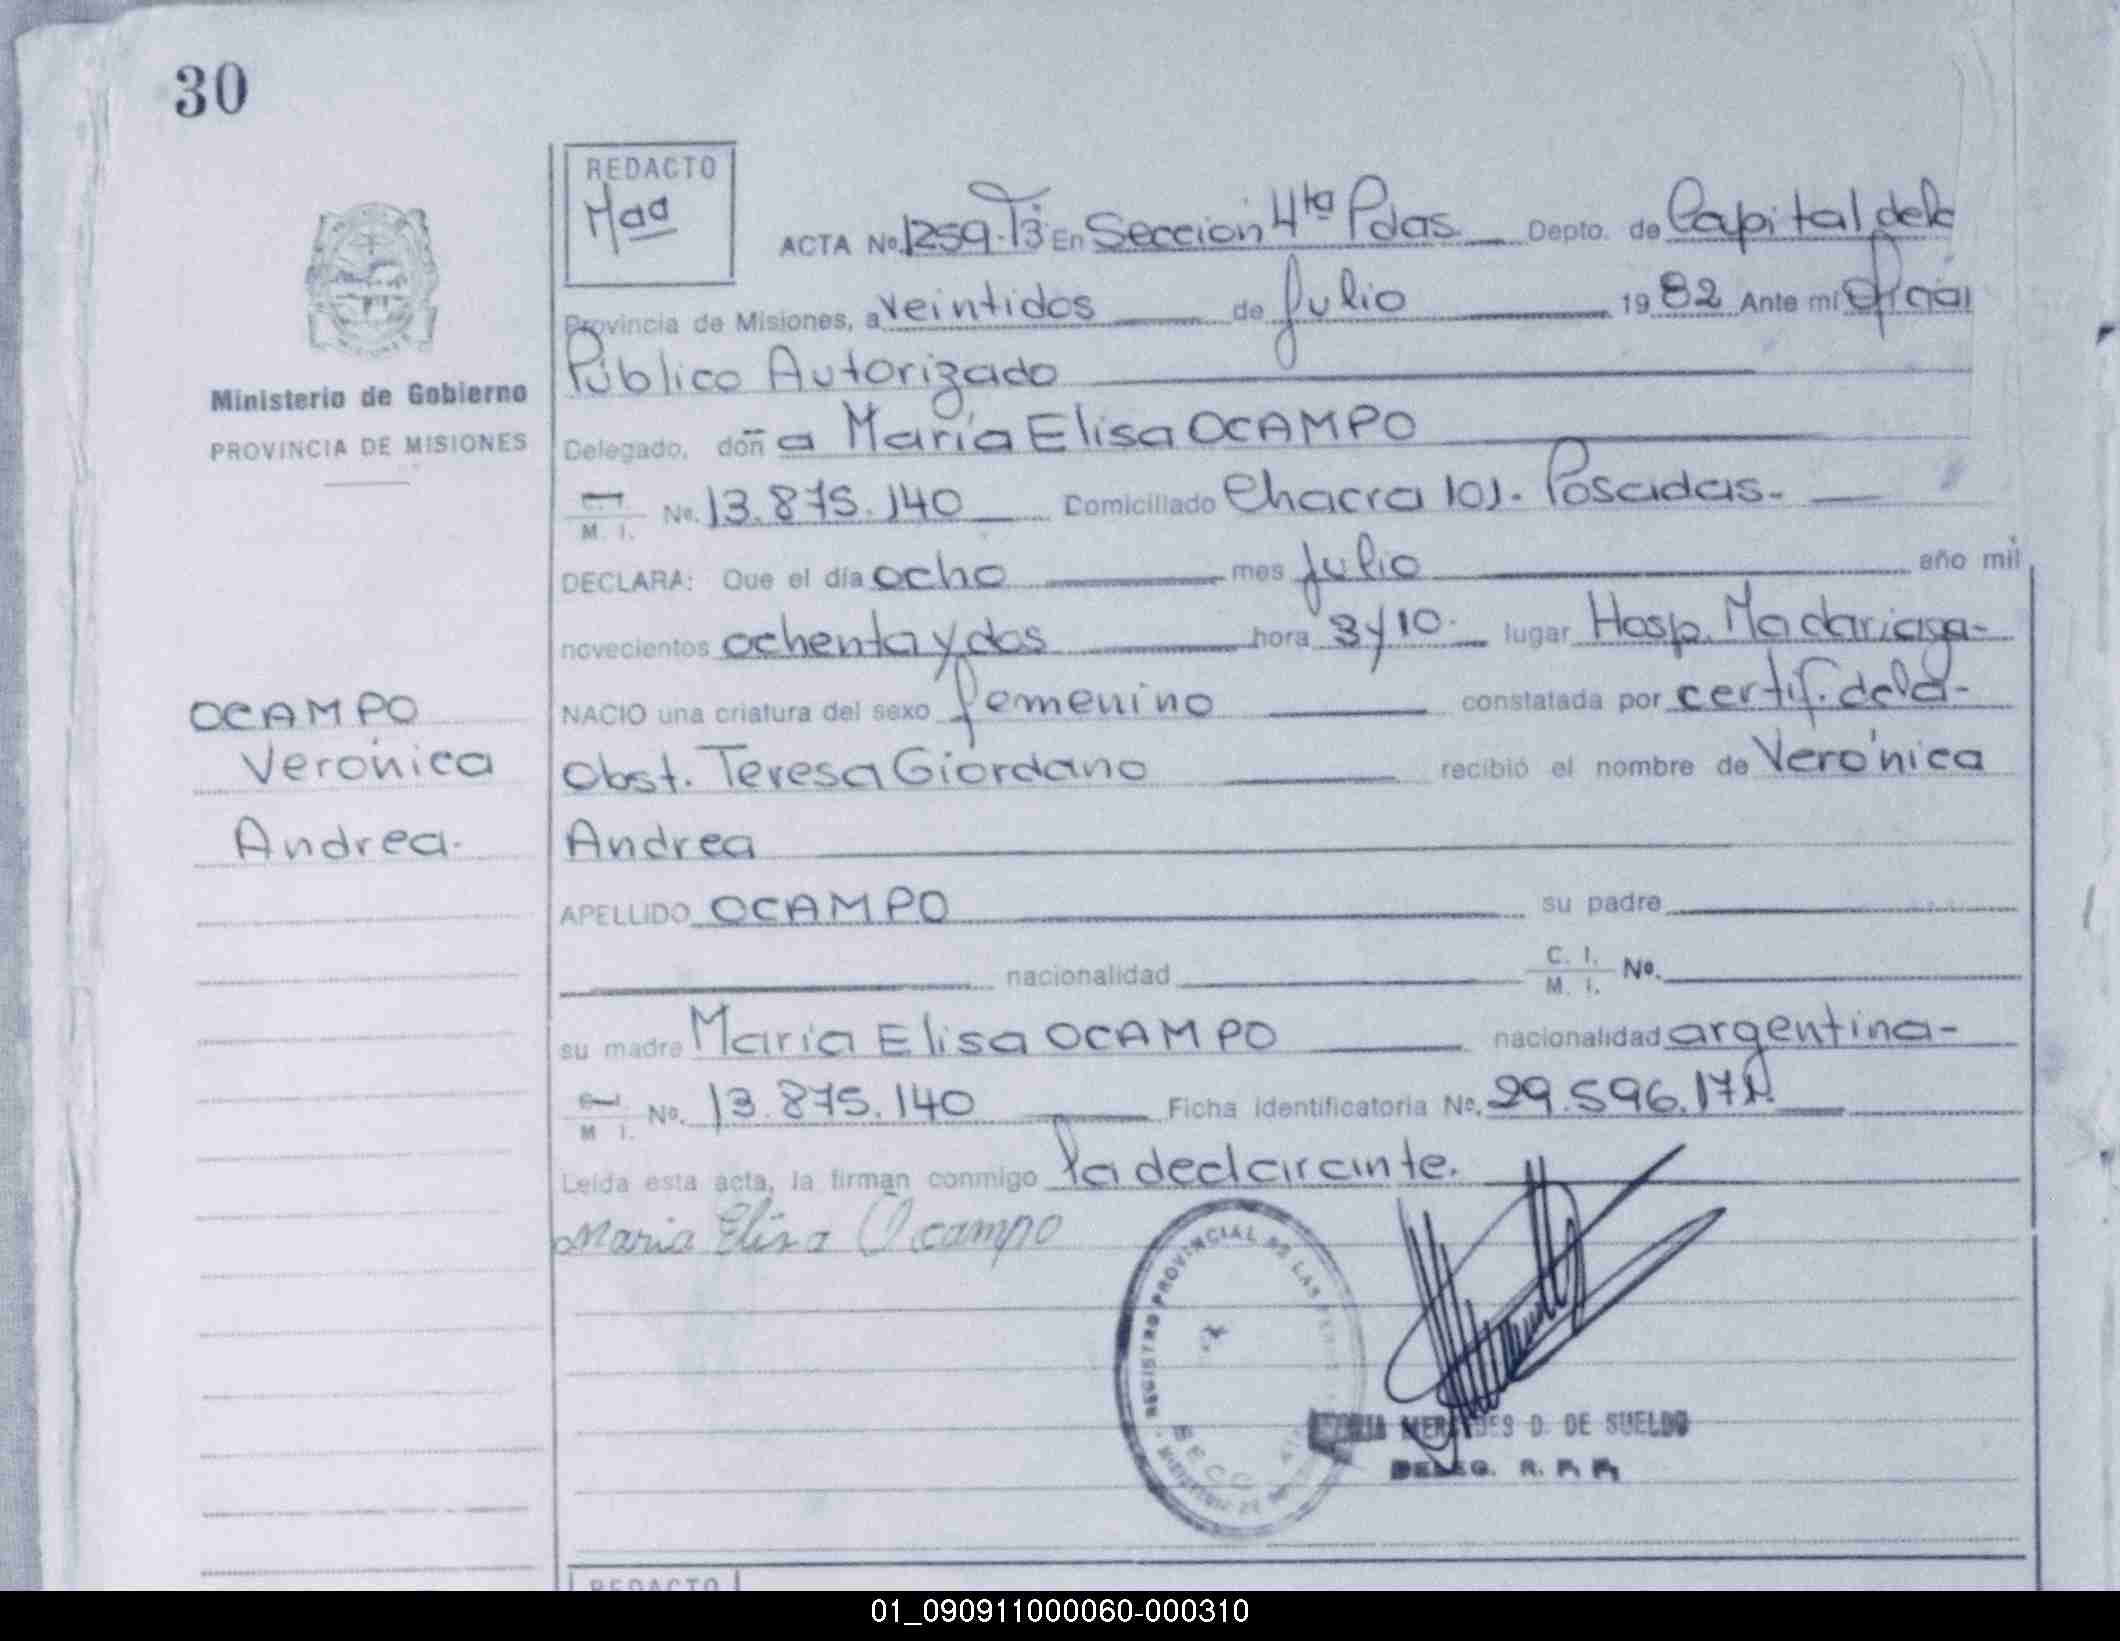 30
REDACTO
Maa
ACTA No. 1259. T3 En Sección 4ta Pdas. Depto. de Capital de la
Provincia de Misiones, a veintidos de Julio 1982 Ante mi Oficial
Público Autorizado
Ministerio de Gobierno
PROVINCIA DE MISIONES
Delegado, doña María Elisa OCAMPO
C. I. M. I. No. 13.875.140 Domiciliado Chacra 101. Posadas.
DECLARA: Que el día ocho mes Julio año mil
novecientos ochenta y dos hora 3 y 10. lugar Hosp. Madariaga-
NACIO una criatura del sexo femenino constatada por certif. de la-
Obst. Teresa Giordano recibió el nombre de Verónica
Andrea
OCAMPO
Verónica
Andrea.
APELLIDO OCAMPO su padre
nacionalidad C. I. M. I. No.
su madre María Elisa OCAMPO nacionalidad argentina-
C. I. M. I. No. 13.875.140 Ficha identificatoria No. 29.596.17
Leida esta acta, la firman conmigo la declarante.
Maria Elisa Ocampo
REGISTRO PROVINCIAL DE LAS
MERCEDES D. DE SUELDO
DELEG. R. P. P.
REDACTO
01_090911000060-000310